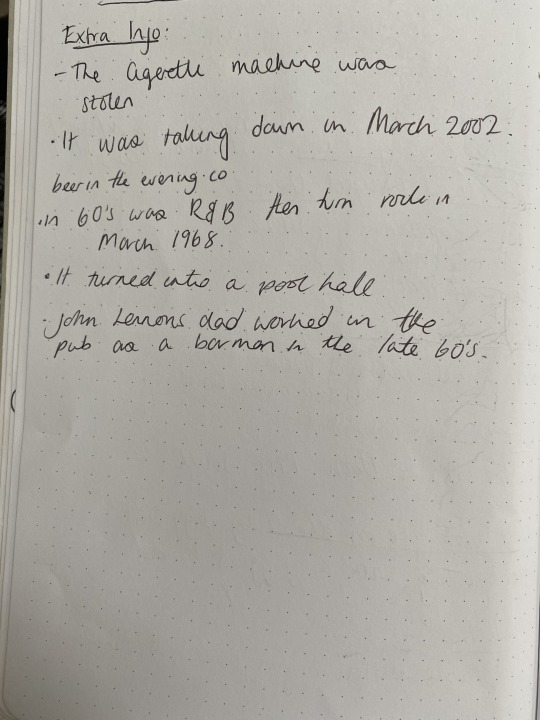 Extra Info:
- The cigerette machine was
stolen
· It was taking down in March 2002.
beer in the evening.co
· in 60's was R&B then turn rock in
March 1968.
· It turned into a pool hall
· John Lennons dad worked in the
pub as a barman in the late 60's.